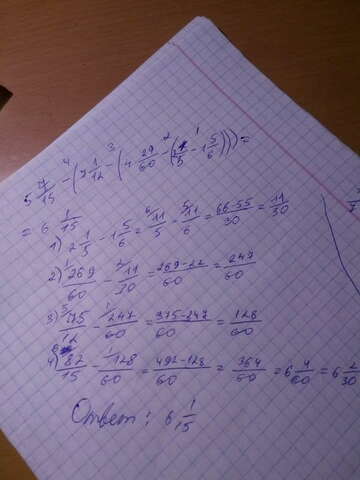 5 7/15 - ( 7 1/12 - ( 4 29/60 - ( 2 1/5 - 1 5/6 ) ) ) =
= 6 1/15
1) 2 1/5 - 1 5/6 = 11/5 - 11/6 = 66-55/30 = 11/30
2) 269/60 - 11/30 = 269-22/60 = 247/60
3) 75/12 - 247/60 = 375-247/60 = 128/60
4) 82/15 - 128/60 = 492-128/60 = 364/60 = 6 4/60 = 6 2/30
Ответ: 6 1/15